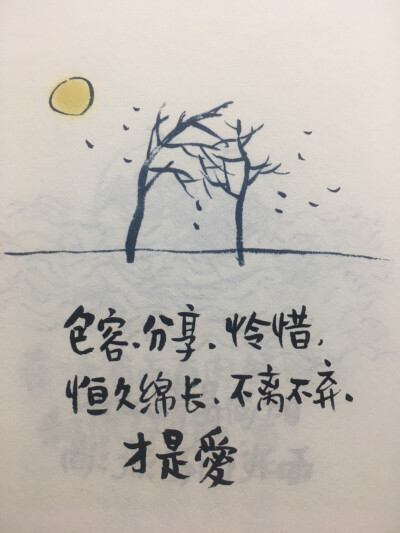 包容、分享、怜惜,
恒久绵长、不离不弃、
才是愛